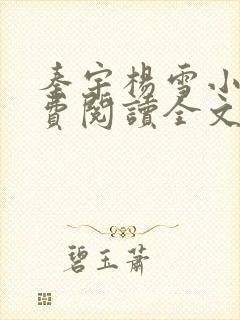 秦宇楊雪小
費閱讀全文
碧玉蕭